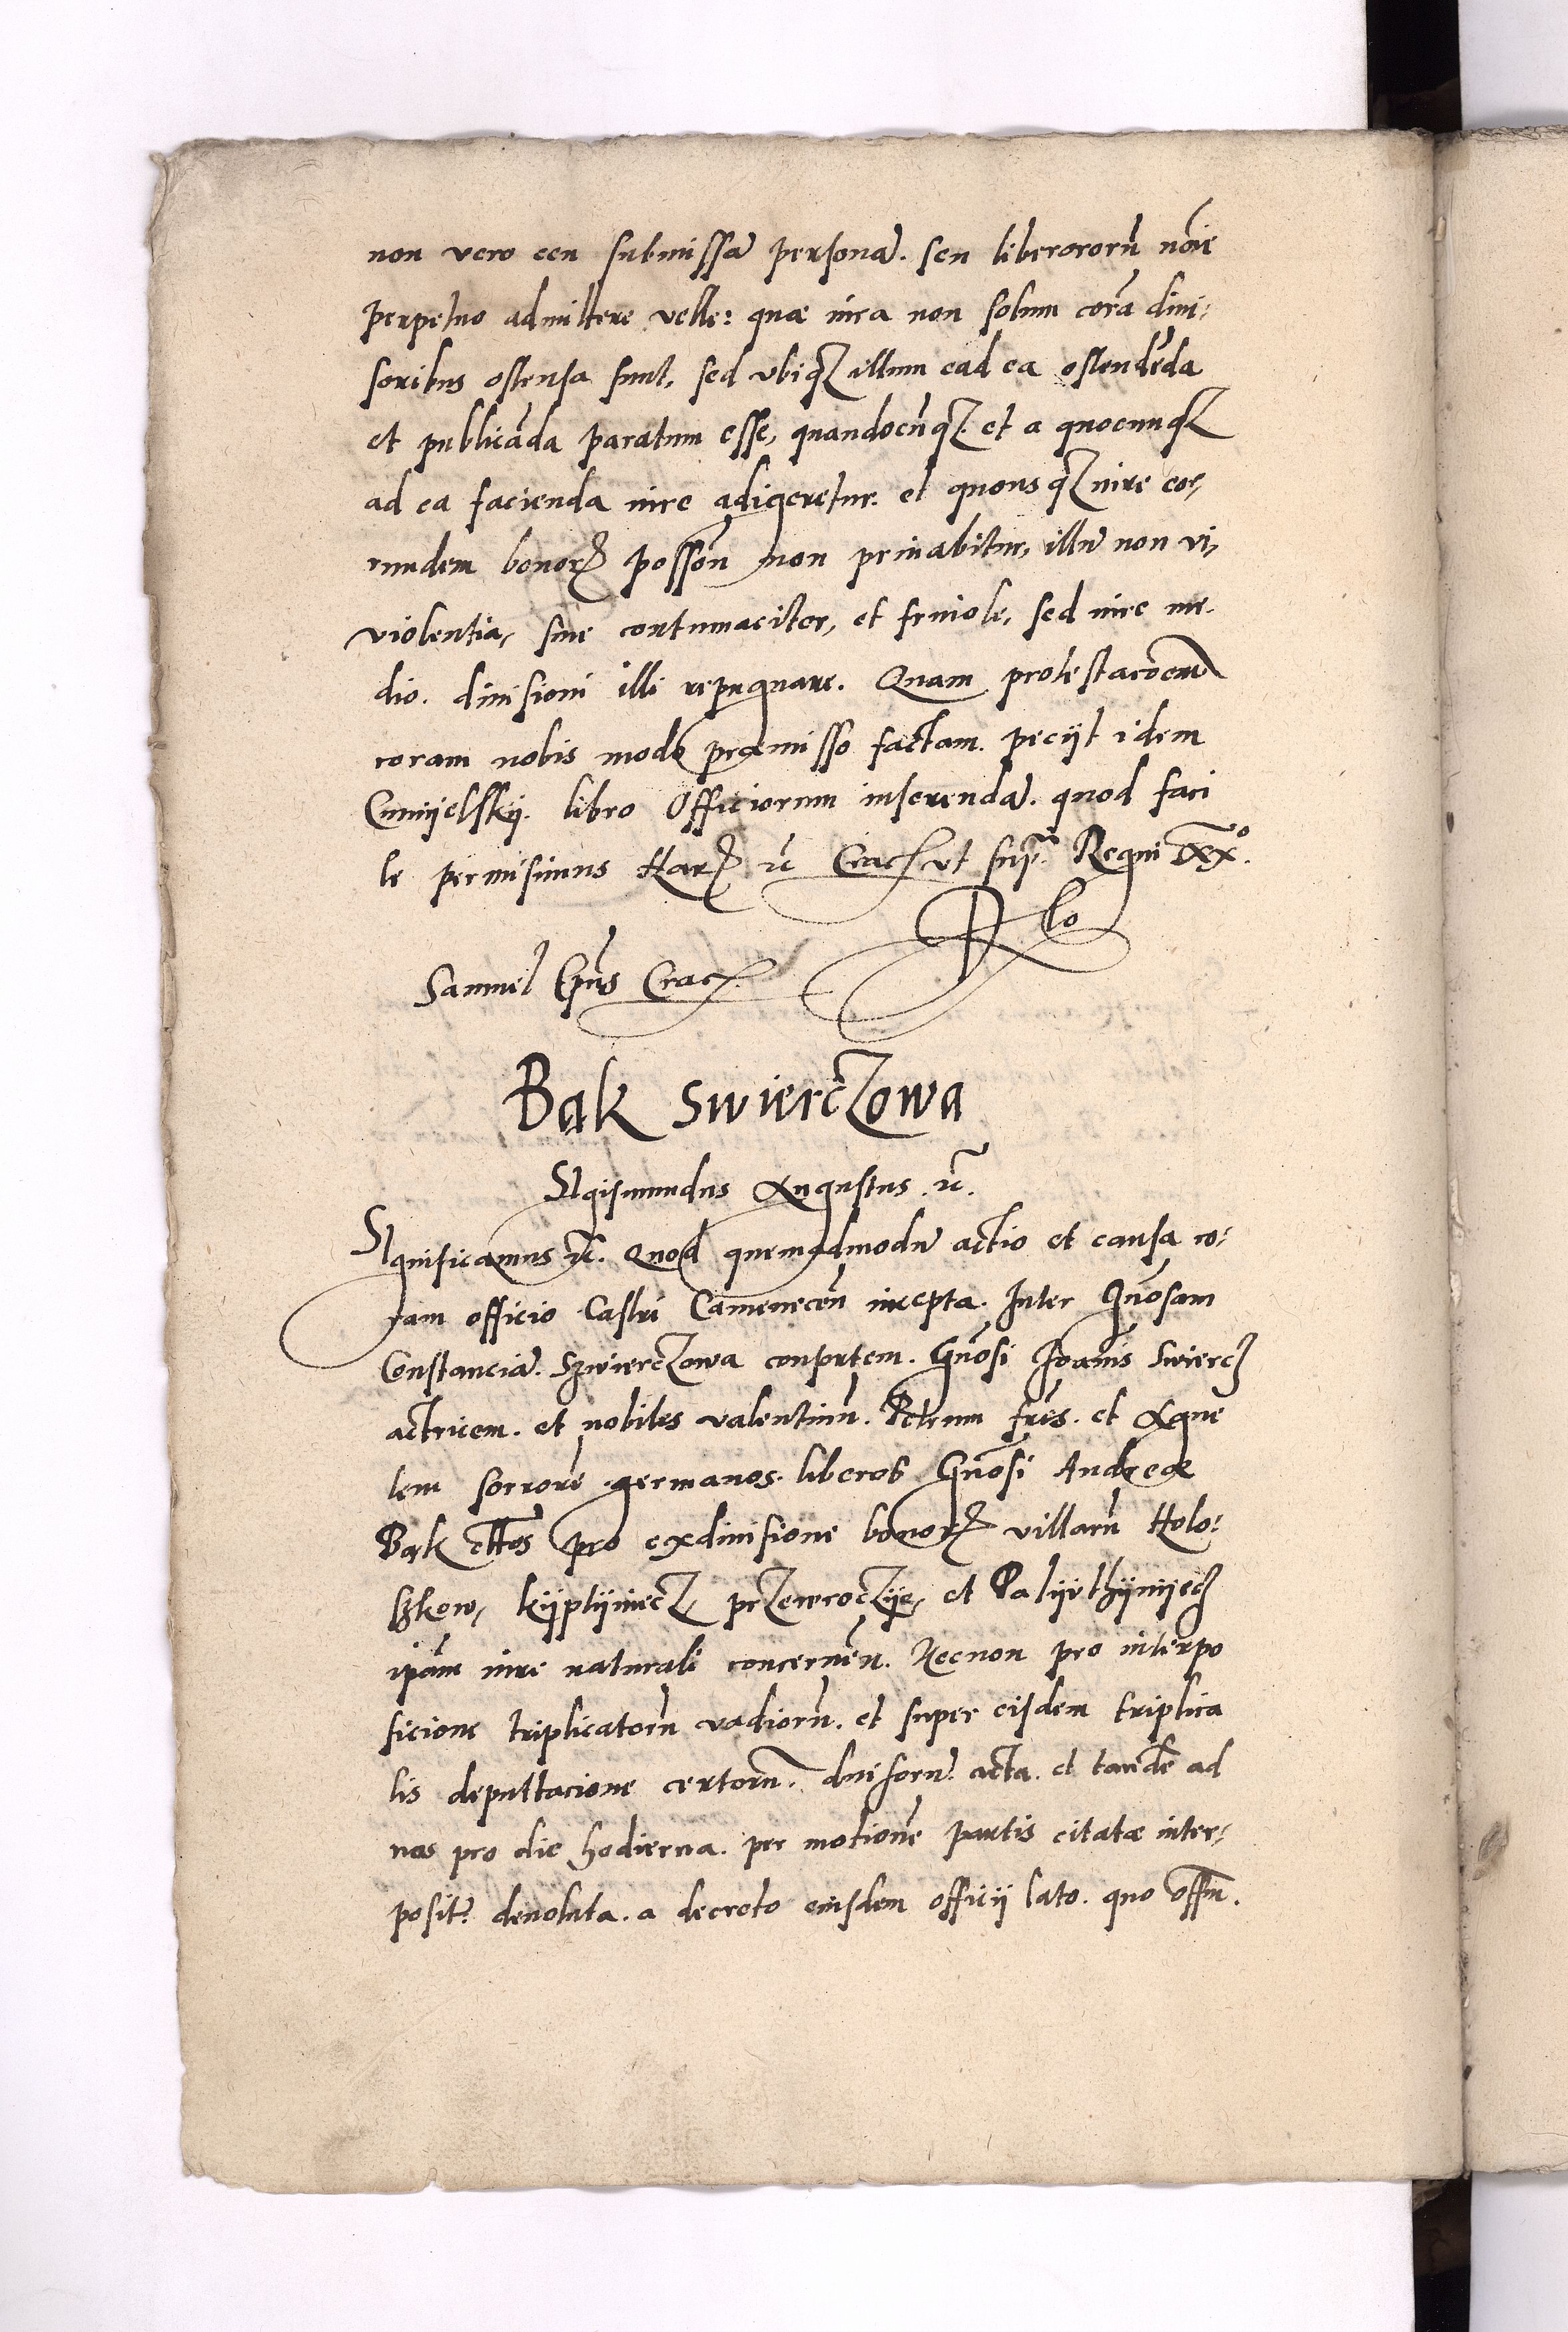 non vero ceu submissã personã. seu liberororũ nõie
perpetuo admittere velle: quæ iura non solum corã diui-
soribus ostensa sunt, sed vbiqz illum ead ea ostendẽda
et publicãda paratum esse, quandocũqz. et a quocunqz
ad ea facienda iure adigeretur. et quousqz iure eor,
undem bonorz possõn non priuabitur, illũ non vi,
violentia, siue contumaciter, et friuole, sed iure me-
dio. diuisioni illi repugnare. Quam protestacõem
coram nobis modo præmisso factam. peciit idem
Cumijelskij. libro Officiorum inserendã. quod faci
le permisimus Harz rc̃ Crac vt sup̃. Regni xxo.
R lo
Samuel Ep̃us Crac.
Bąk swierczowa
Sigismundus Augustus. rc̃.
Significamus rc̃. Quod quemadmodũ actio et causa co-
ram officio Castri Camenecẽn incepta. Inter Gñosam
Constanciã. Szwierczowa conputem. Gñosi Joanis Swiercz
actricem. et nobiles valentinũ. Petrum fr̃es. et Agne
tem sorrorẽ germanos. liberos Gñosi Andreæ
Bąk c̃ttos pro exdiuisione bonorz villarũ Holo:
szkow, kijptijniecz, przewroczije, et Palijvthijnijecz
ip̃am iure naturali concernẽn. Necnon pro interpo
sicione triplicatorũ vadiorũ. et super eisdem triplica
tis deputtacione certorũ. diuisorũ. acta. et tandẽ ad
nos pro die hodierna. per motionẽ partis citatæ inter,
posit̃. deuoluta. a decreto eiusdem officij lato. quo off̃m.